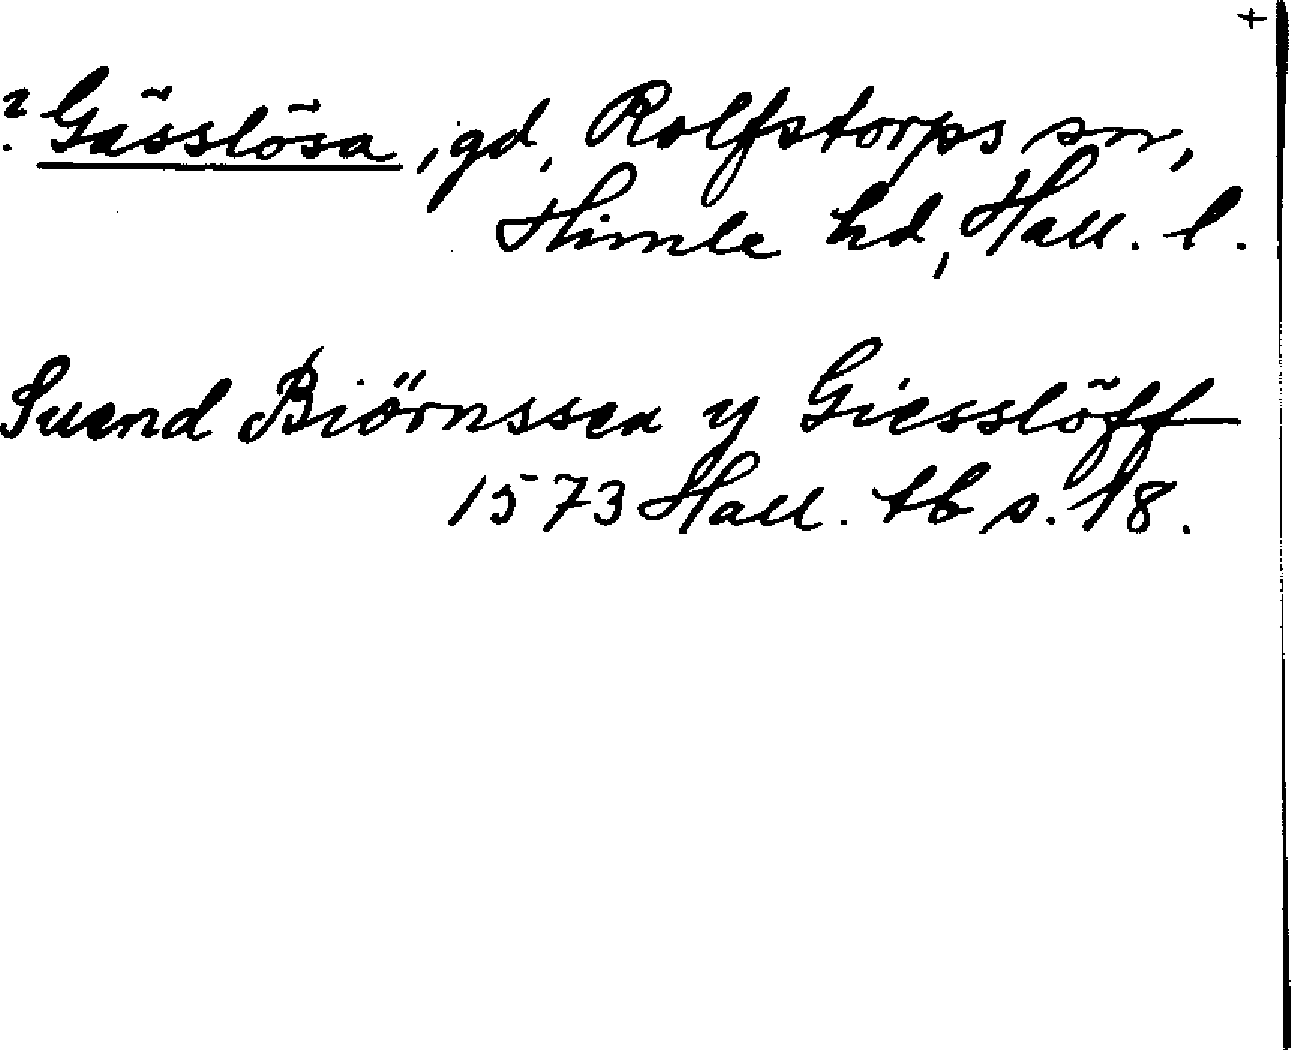 +
? Gässlösa, gd, Rolfstorps sn,
Himle hd, Hall. l.
Suend Biörnssen y Giesslöff
1573 Hall. tb s. 18.